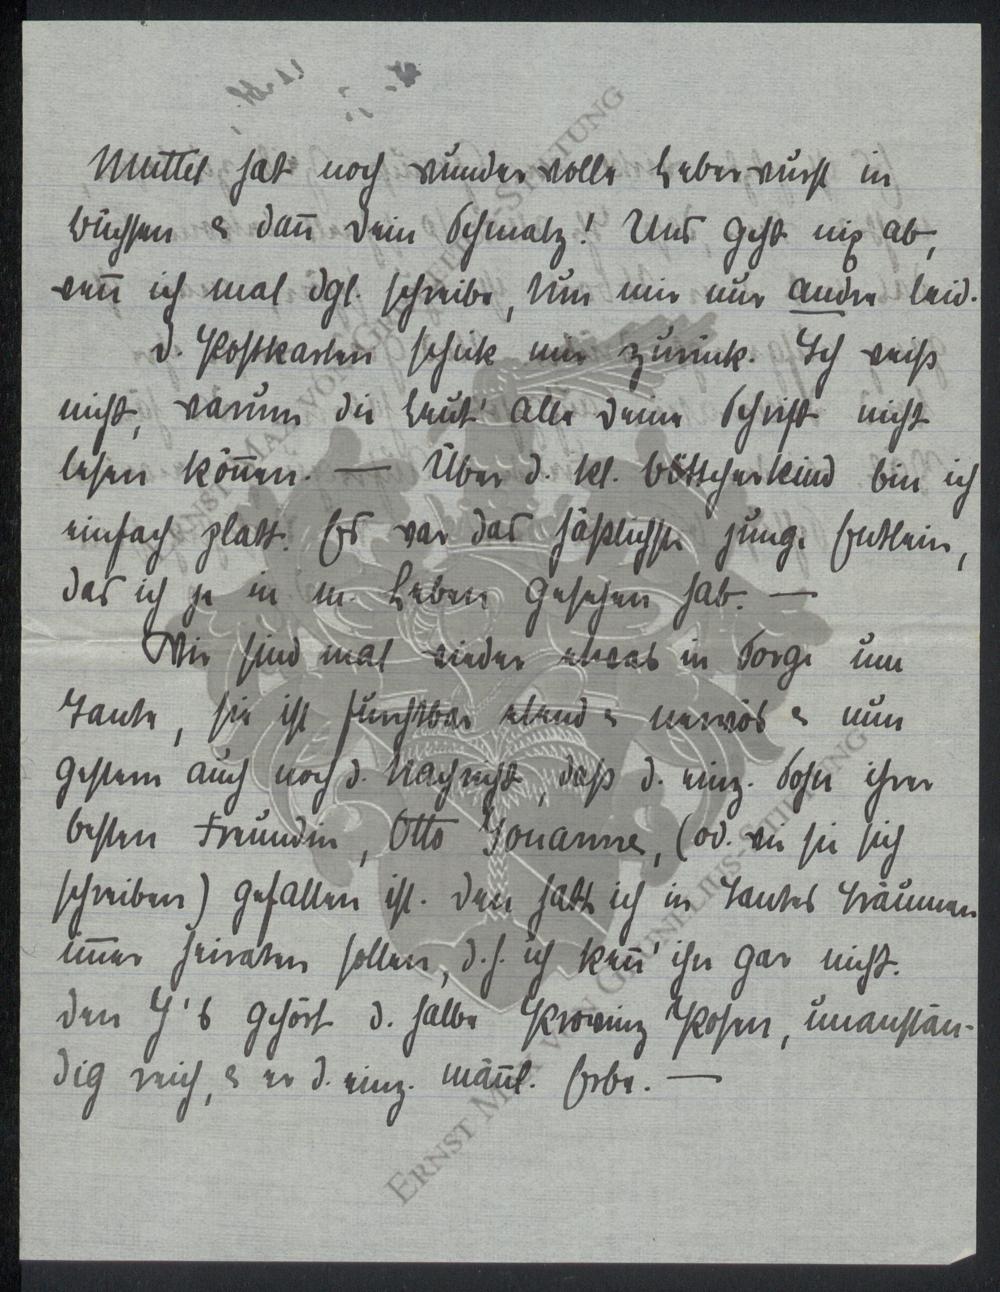 Muttel hat noch wundervolle Leberwurst in
Büchsen & dan̄ Dein Schmalz! Uns geht nix ab,
wen̄ ich mal dgl. schreibe, tun mir nur andre leid.
D. Postkarten schick mir zurück. Ich weiß
nicht, warum die Leut' alle Deine Schrift nicht
lesen kön̄en. — Über d. kl. Böttcherkind bin ich
einfach platt. Es war das häßlichste junge Entlein,
das ich je in m. Leben gesehen hab. —
Wir sind mal wieder etwas in Sorge um
Tante, sie ist furchtbar elend & nervös & nun
gestern auch noch d. Nachricht, daß d. einz. Sohn ihrer
besten Freundin, Otto (od. wie sie sich
schreiben) gefallen ist. Den hätt ich in Tantes Träumen
im̄er heiraten sollen, d. h. ich ken̄' ihn gar nicht.
Den J's gehört d. halbe Provinz Posen, unanstän-
dig reich, & er d. einz. män̄l. Erbe. —
ERNST MAX VON GRUNELIUS-STIFTUNG
ERNST MAX VON GRUNELIUS-STIFTUNG